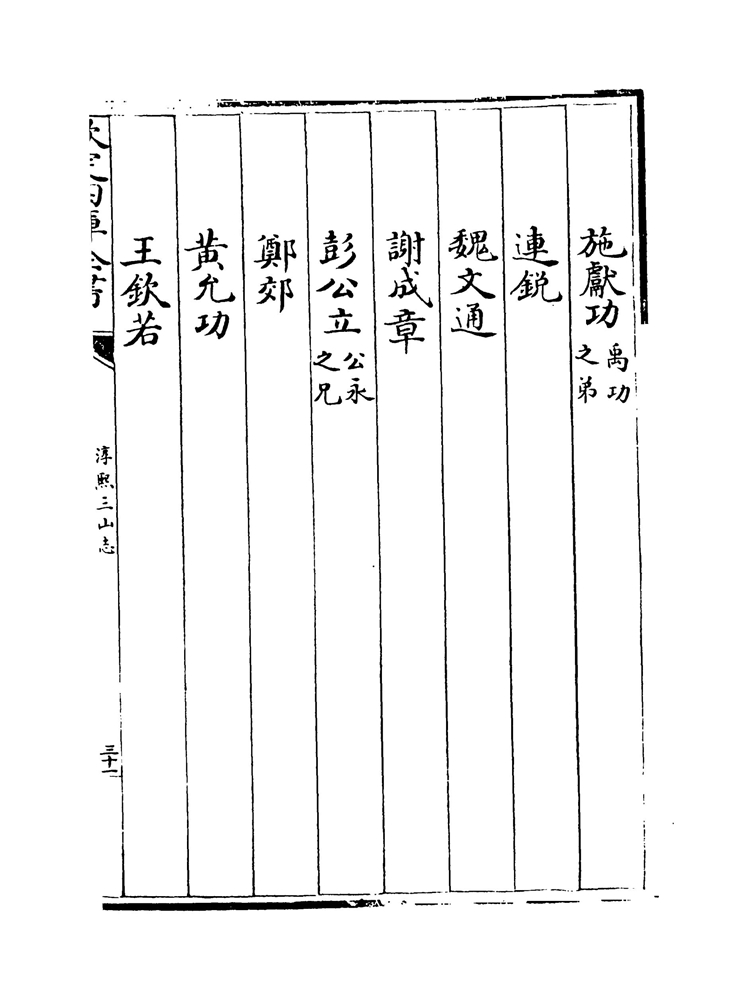 施獻功 禹功之弟
連鋭
魏文通
謝成章
彭公立 公永之兄
鄭郊
黃允功
王欽若
欽定四庫全書
淳熙三山志
三十一